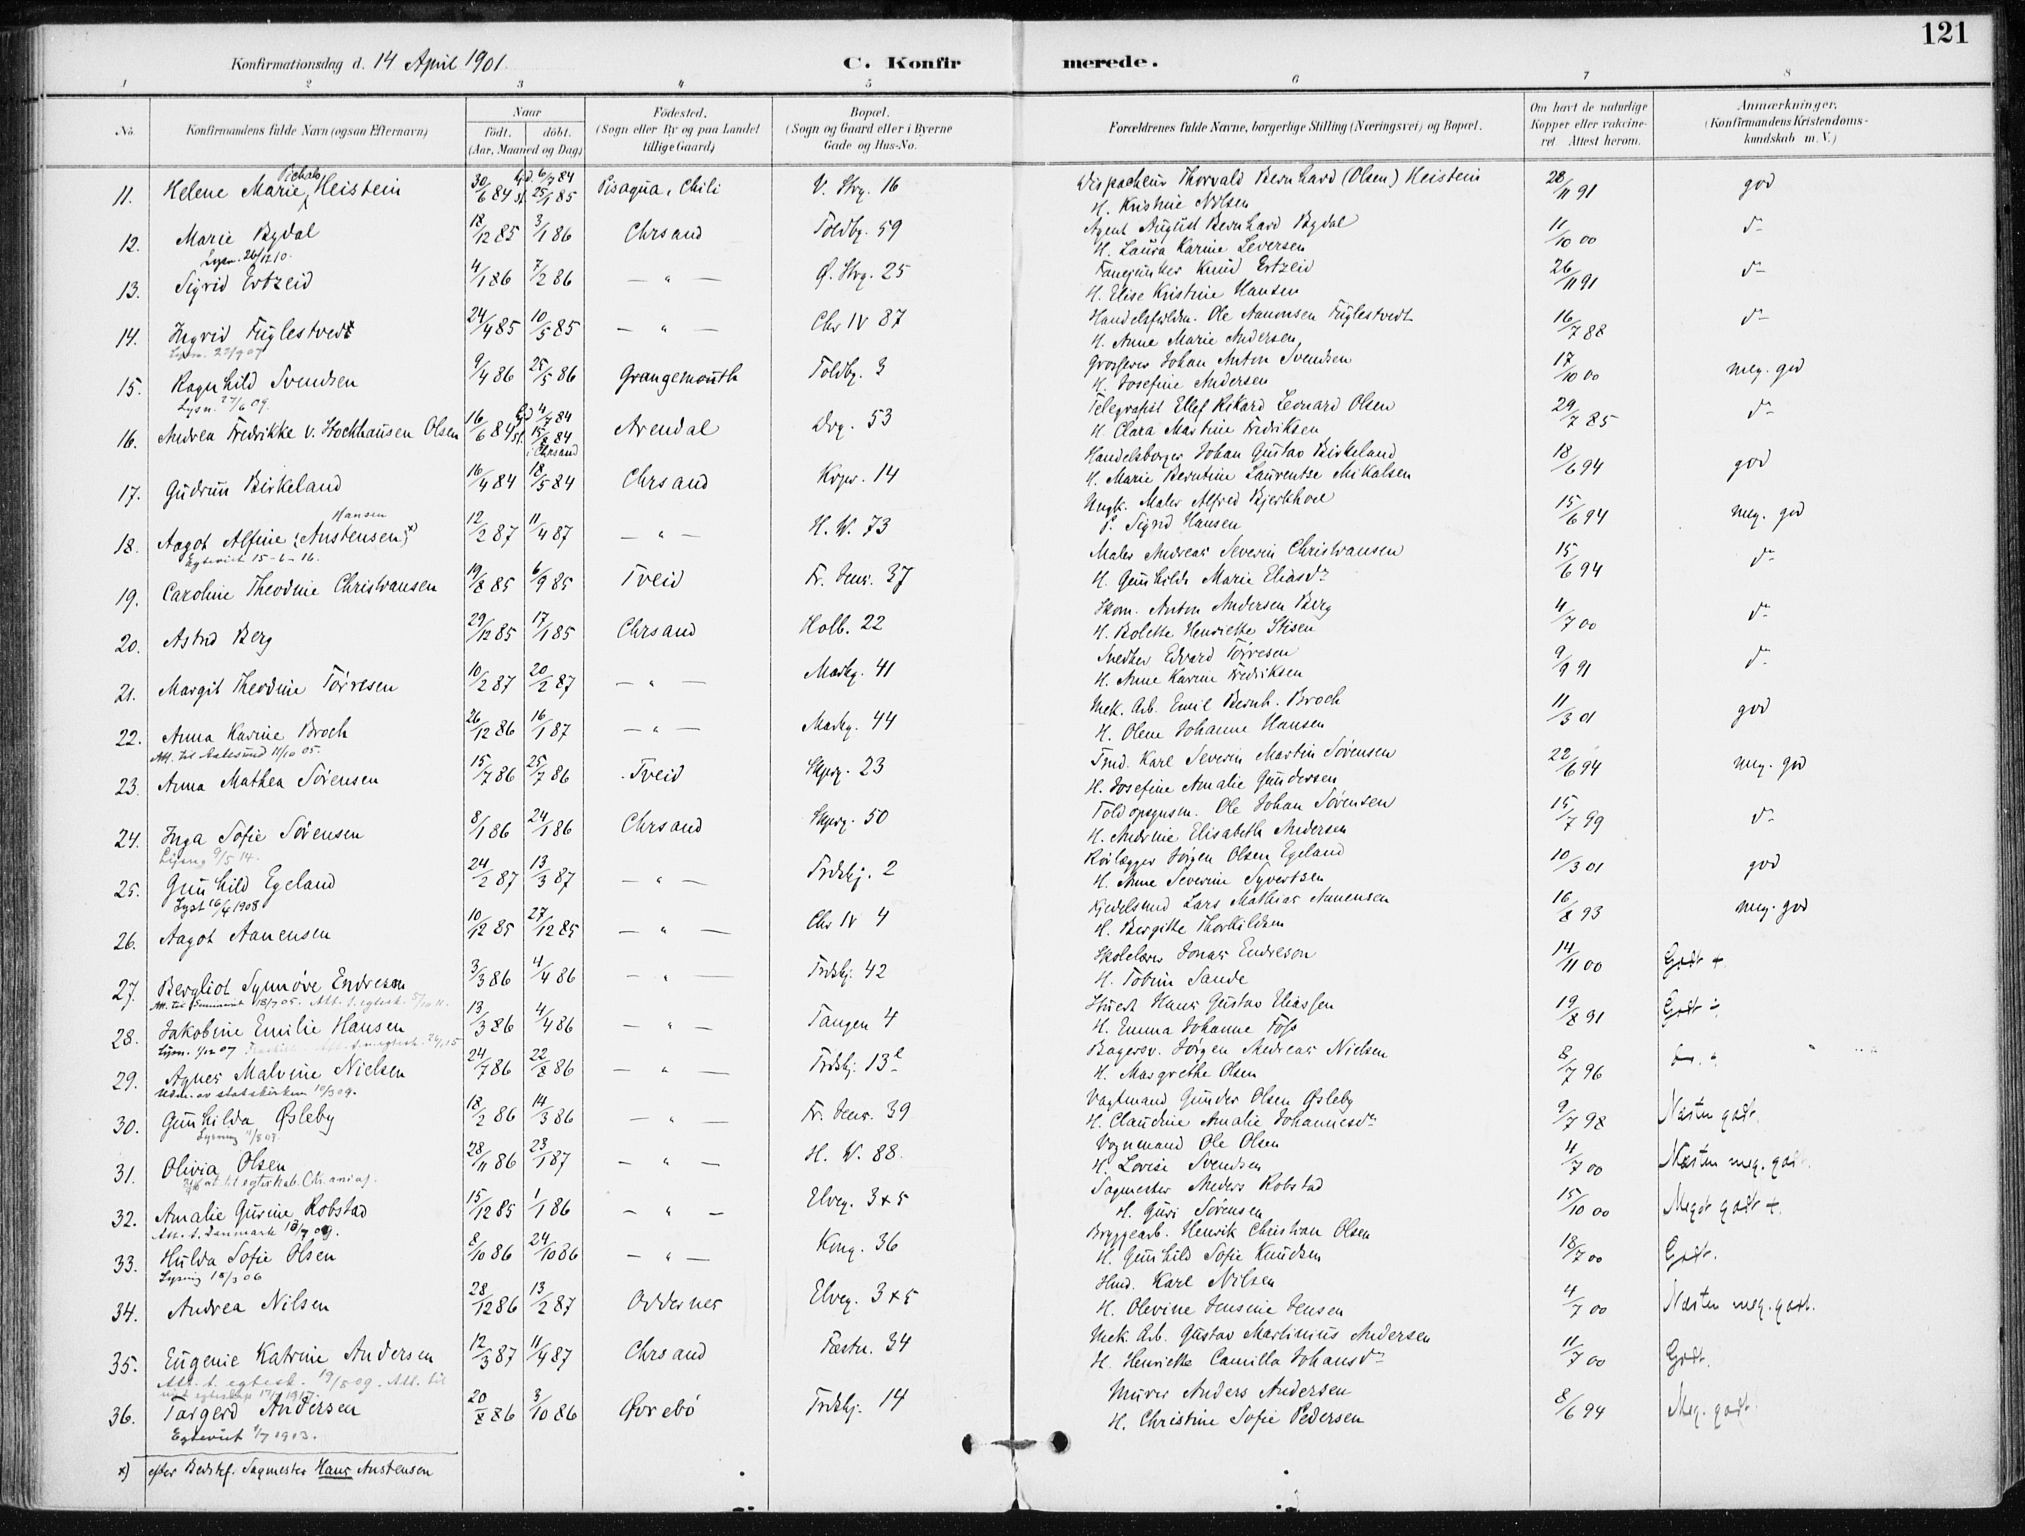 121
Konfirmationsdag d. 14 April 1901.
C. Konfirmerede.
1 2 3 4 5 6 7 8
No. Konfirmandens fulde Navn (ogsaa Efternavn) Naar født. døbt. (Aar, Maaned og Dag) Fødested. (Sogn eller By og paa Landet tillige Gaard) Bopæl. (Sogn og Gaard eller i Byerne Gade og Hus-No. Forældrenes fulde Navne, borgerlige Stilling (Næringsvei) og Bopæl. Om havt de naturlige Kopper eller vakcineret Attest herom. Anmærkninger, (Konfirmandens Kristendomskundskab m. V.)
11. Helene Marie Heistein 30/6 84 hjd. 6/7 84 st. 25/1 85 Pisaqua, Chili V. Strg. 16 Dispacheur Thorvald Bernhard (Olsen) Heistein 28/11 91 god
H. Kristine Nilsen
12. Marie Bydal 18/12 85 3/1 86 Chrsand Toldbg. 59 Agent August Bernhard Bydal 11/10 00 do
Lysn. 26/12 10. H. Laura Karine Seversen
13. Sigrid Ertzeid 4/1 86 7/2 86 — " — Ø. Strg. 25 Fanejunker Knud Ertzeid 26/11 91 do
H. Elise Kristine Hansen
14. Ingrid Fuglestvedt 24/4 85 10/5 85 — " — Chr IV 87 Handelsfuldm. Ole Aanonsen Fuglestvedt 16/7 88 do
Lysn. 27/9 07 H. Anne Marie Andersen
15. Ragnhild Svendsen 9/4 86 25/5 86 Grangemouth Toldbg. 3 Grosserer Johan Anton Svendsen 17/10 00 meg. god
Lysn. 27/6 09. H. Josefine Andersen
16. Andrea Fredrikke v. Hockhausen Olsen 16/6 84 hjd 4/7 84 st. 15/8 84 i Chrsand Arendal Drg. 53 Telegrafist Ellef Rikard Leonard Olsen 29/7 85 do
H. Clara Martine Fredriksen
17. Gudrun Birkeland 16/4 84 18/5 84 Chrsand Krpr. 14 Handelsborger Johan Gustav Birkeland 18/6 94 god
H. Marie Berntine Laurentse Mikalsen
18. Aagot Alfine (Austensen) x) Hansen 12/2 87 11/4 87 — " — H. W. 73 Ungk. Maler Alfred Bjerkhoel 15/6 94 meg. god
Egteviet 15-6-16. P. Sigrid Hansen
19. Caroline Theodine Christiansen 19/8 85 6/9 85 Tveid Fr. Jenr. 37 Maler Andreas Severin Christiansen 15/6 94 do
H. Gunhilde Marie Eliasdr
20. Astrid Berg 29/12 85 17/1 85 Chrsand Holb. 22 Skom. Anton Andersen Berg 4/7 00 do
H. Bolette Henriette Stisen
21. Margit Theodine Tørresen 10/2 87 20/2 87 — " — Markg. 41 Snedker Edvard Tørresen 9/9 91 do
H. Anne Karine Fredriksen
22. Anna Karine Broch 26/12 86 16/1 87 — " — Markg. 44 Mek. Arb. Emil Bernh. Broch 11/3 01 god
Att. til Aalesund 11/10 05. H. Olene Johanne Hansen
23. Anna Mathea Sørensen 15/7 86 25/7 86 Tveid Skprg. 23 Tmd. Karl Severin Martin Sørensen 22/6 94 meg. god
H. Josefine Amalie Gundersen
24. Inga Sofie Sørensen 8/1 86 24/1 86 Chrsand Skprg. 50 Toldopsynsm. Ole Johan Sørensen 15/7 99 do
Lysng 9/5 14. H. Andrine Elisabeth Andersen
25. Gunhild Egeland 24/2 87 13/3 87 — " — Frdskj. 2 Rørlægger Jørgen Olsen Egeland 10/3 01 god
Lyst 16/4 1908 H. Anne Severine Syvertsen
26. Aagot Aanensen 10/12 85 27/12 85 — " — Chr IV 4 Kjedelsmed Lars Mathias Aanensen 16/8 93 meg. god
H. Bergitte Thorkildsen
27. Bergliot Synnøve Endreson 3/3 86 4/4 86 " — Frdskj. 42 Skolelærer Jonas Endreson 14/11 00 Godt +
Att. til Seminariet 18/7 05. Att. t. egtesk. H. Tobine Sande
28. Jakobine Emilie Hansen 13/3 86 4/4 86 — " — Tangen 4 Stuert Hans Gustav Eliassen 19/8 91 Godt ÷
Lysn. 1/12 07 H. Emma Johanne Foss
29. Agnes Malvine Nielsen 24/7 86 22/8 86 — " — Frdskj. 13 Bagersv. Jørgen Andreas Nielsen 8/7 96
Udm. av statskirken 10/3 09. H. Margrethe Olsen
30. Gunhilda Øsleby 18/2 86 14/3 86 — " — Fr. Jenr. 39 Vagtmand Gunder Olsen Øsleby 9/7 98 Næsten godt.
Lysning H. Claudine Amalie Johannesdr
31. Olivia Olsen 28/11 86 23/1 87 — " — H. W. 88. Vognmand Ole Olsen 4/7 00 Næsten meg. godt.
H. Lovise Svendsen
32. Amalie Gurine Robstad 15/12 85 1/1 86 — " — Elveg. 3 & 5 Sagmester Anders Robstad 15/10 00 Meget godt +.
Att. t. Danmark 13/7 09. H. Guri Sørensen
33. Hulda Sofie Olsen 8/10 86 24/10 86 — " — Kong. 36 Bryggearb. Henrik Christian Olsen 18/7 00 Godt.
Lysning 18/3 06 H. Gunhild Sofie Knudsen
34. Andrea Nilsen 28/12 86 13/2 87 Oddernes Elveg. 3 & 5 Smd. Karl Nilsen 4/7 00 Næsten meg. godt.
H. Olevine Jensine Jensen
35. Eugenie Katrine Andersen 12/3 87 11/4 87 Chrsand Fæstn. 34 Mek. Arb. Gustav Martinius Andersen 11/7 00 Godt.
Att. t. egtesk. 19/8 09. Att. til H. Henriette Camilla Johansdr
36. Torgerd Andersen 20/8 86 3/10 86 Øvrebø Frdskj. 14 Murer Anders Andersen 8/6 94 Meg. godt.
Egteviet 9/7 1913. H. Christine Sofie Pedersen
x) efter Bedstef. Sagmester Hans Austensen